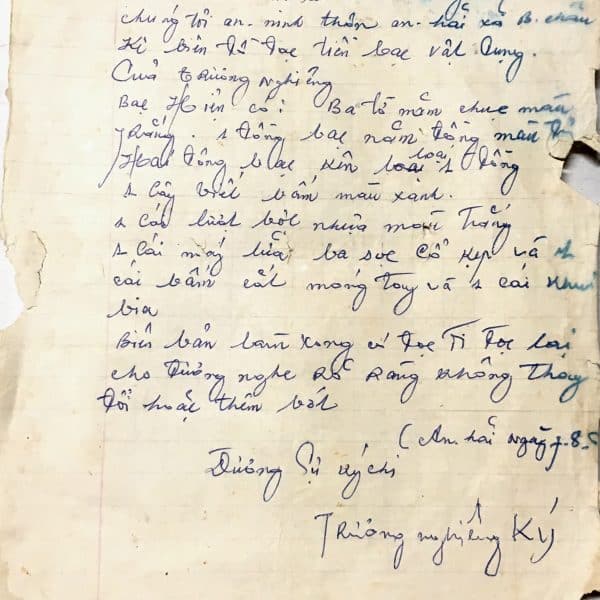 chúng tôi an-ninh thôn an-hải xã B. châu
Kí biên tờ tạc tiền bạc vật dụng.
Của trương nghiêng
Bạc Hiện có: Ba tờ năm chục màu
trắng. 1 đồng bạc năm đồng màu
Hai đồng bạc kẽn loại 1 đồng
1 cây viết bấm màu xanh.
1 cái lượt bột nhựa màu Trắng
1 cái máy lửa ba soc cổ kẹp và 1
cái bấm cắt móng tay và 1 cái khui
bia
Biên bản làm xong có đọc đọc lại
cho đương nghe rỏ ràng không thay
đổi hoặc thêm bớt
(An-hải ngày 7-8-
Đương Sự ký chỉ
Trương nghiêng Ký